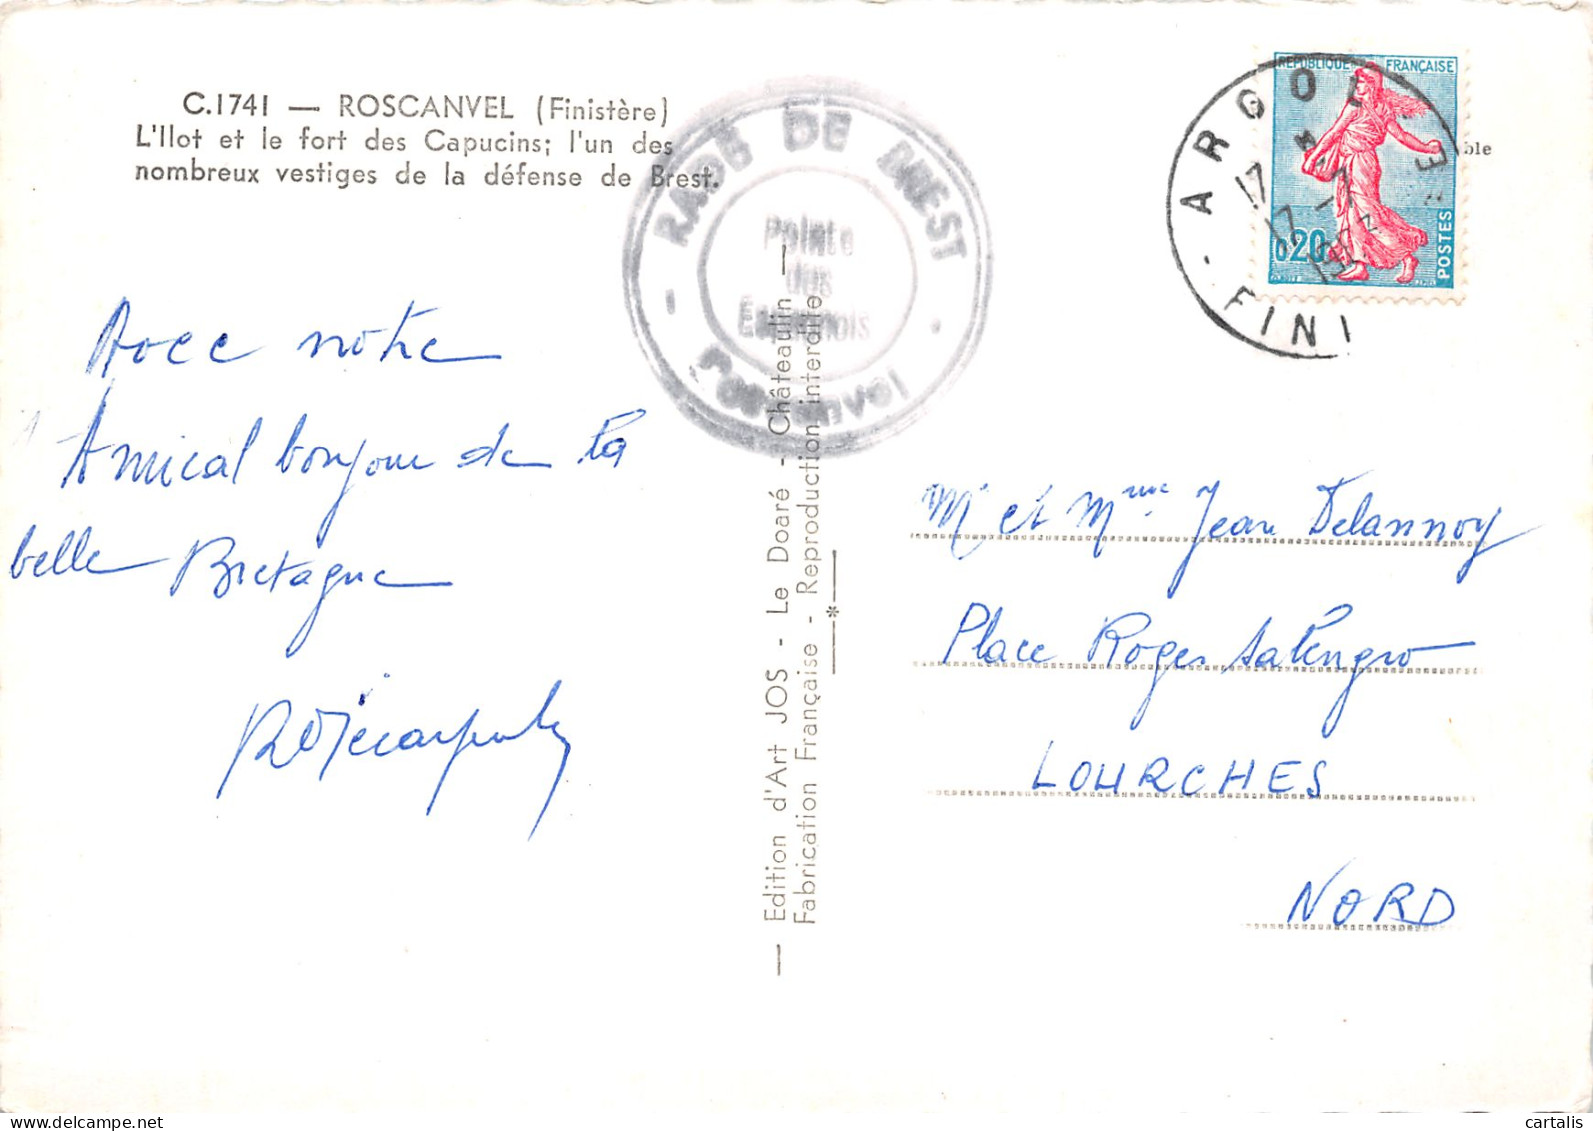 C.1741 — ROSCANVEL (Finistère)
L'Ilot et le fort des Capucins; l'un des
nombreux vestiges de la défense de Brest.
RADE DE BREST
Pointe
des
Espagnols
Roscanvel
REPUBLIQUE FRANÇAISE
0,20
POSTES
ARGOL
FINI
17
17 -7
ble
Avec notre
Amical bonjour de la
belle Bretagne
— Edition d'Art JOS - Le Doaré - Châteaulin —
Fabrication Française - Reproduction interdite
Mr et Mme Jean Delannoy
Place Roger Salengro
LOURCHES
NORD
cartalis
delcampe.net